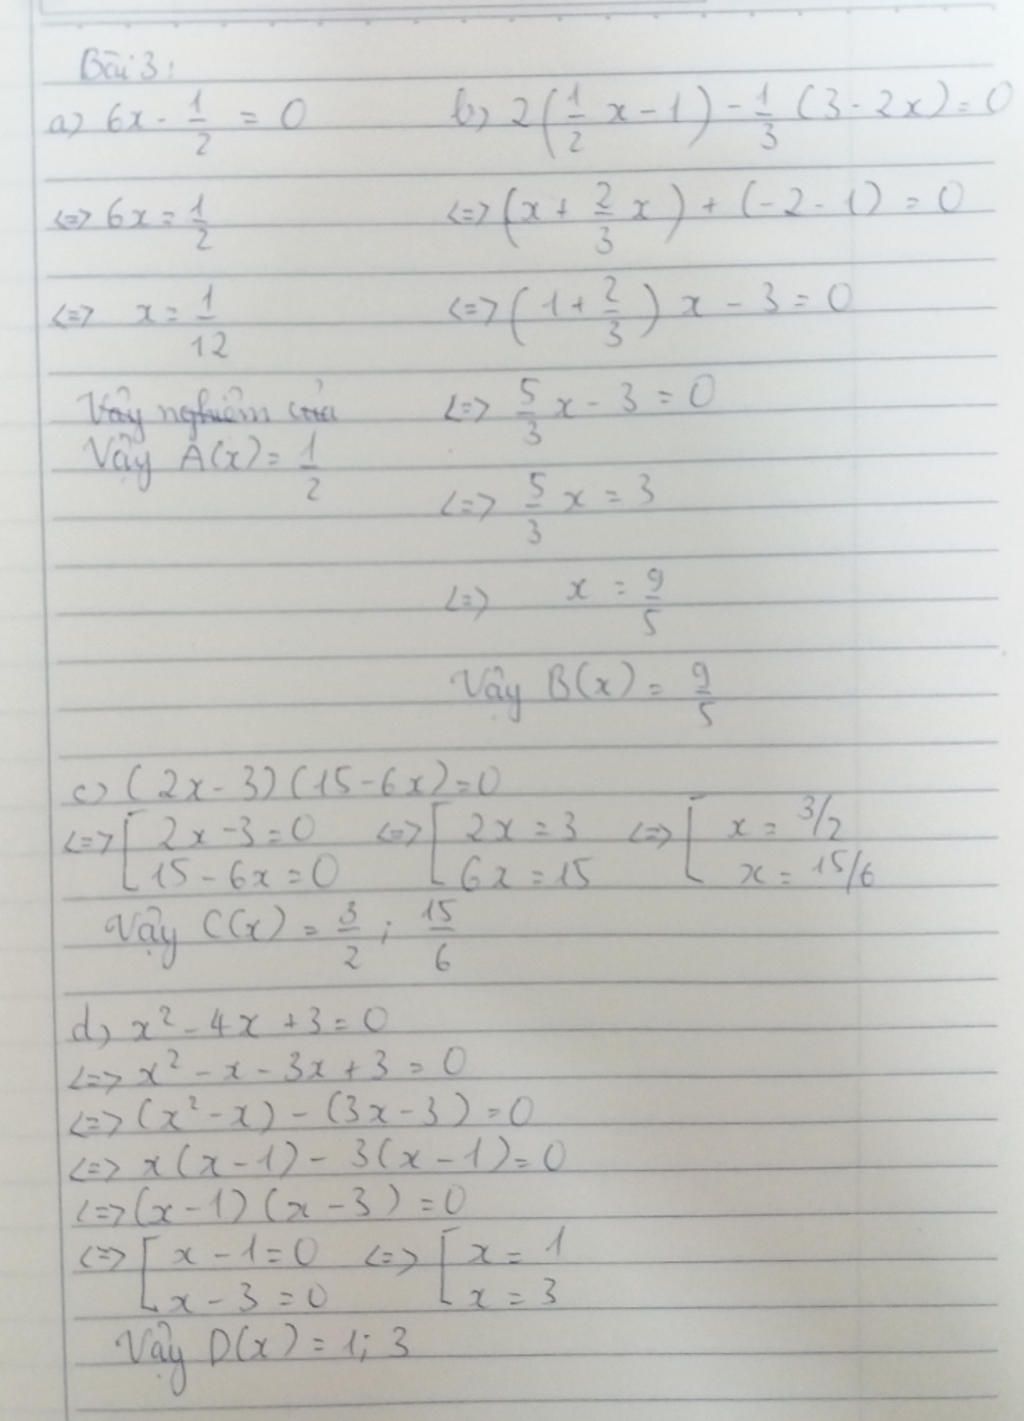 Bài 3:
a) 6x - 1/2 = 0
<=> 6x = 1/2
<=> x = 1/12
Vậy nghiệm của
Vậy A(x) = 1/2
b) 2(1/2 x - 1) - 1/3 (3 - 2x) = 0
<=> (x + 2/3 x) + (-2 - 1) = 0
<=> (1 + 2/3) x - 3 = 0
<=> 5/3 x - 3 = 0
<=> 5/3 x = 3
<=> x = 9/5
Vậy B(x) = 9/5
c) (2x - 3)(15 - 6x) = 0
<=> [ 2x - 3 = 0 <=> [ 2x = 3 <=> [ x = 3/2
15 - 6x = 0 6x = 15 x = 15/6
Vậy C(x) = 3/2 ; 15/6
d) x² - 4x + 3 = 0
<=> x² - x - 3x + 3 = 0
<=> (x² - x) - (3x - 3) = 0
<=> x(x - 1) - 3(x - 1) = 0
<=> (x - 1) (x - 3) = 0
<=> [ x - 1 = 0 <=> [ x = 1
x - 3 = 0 x = 3
Vậy D(x) = 1; 3